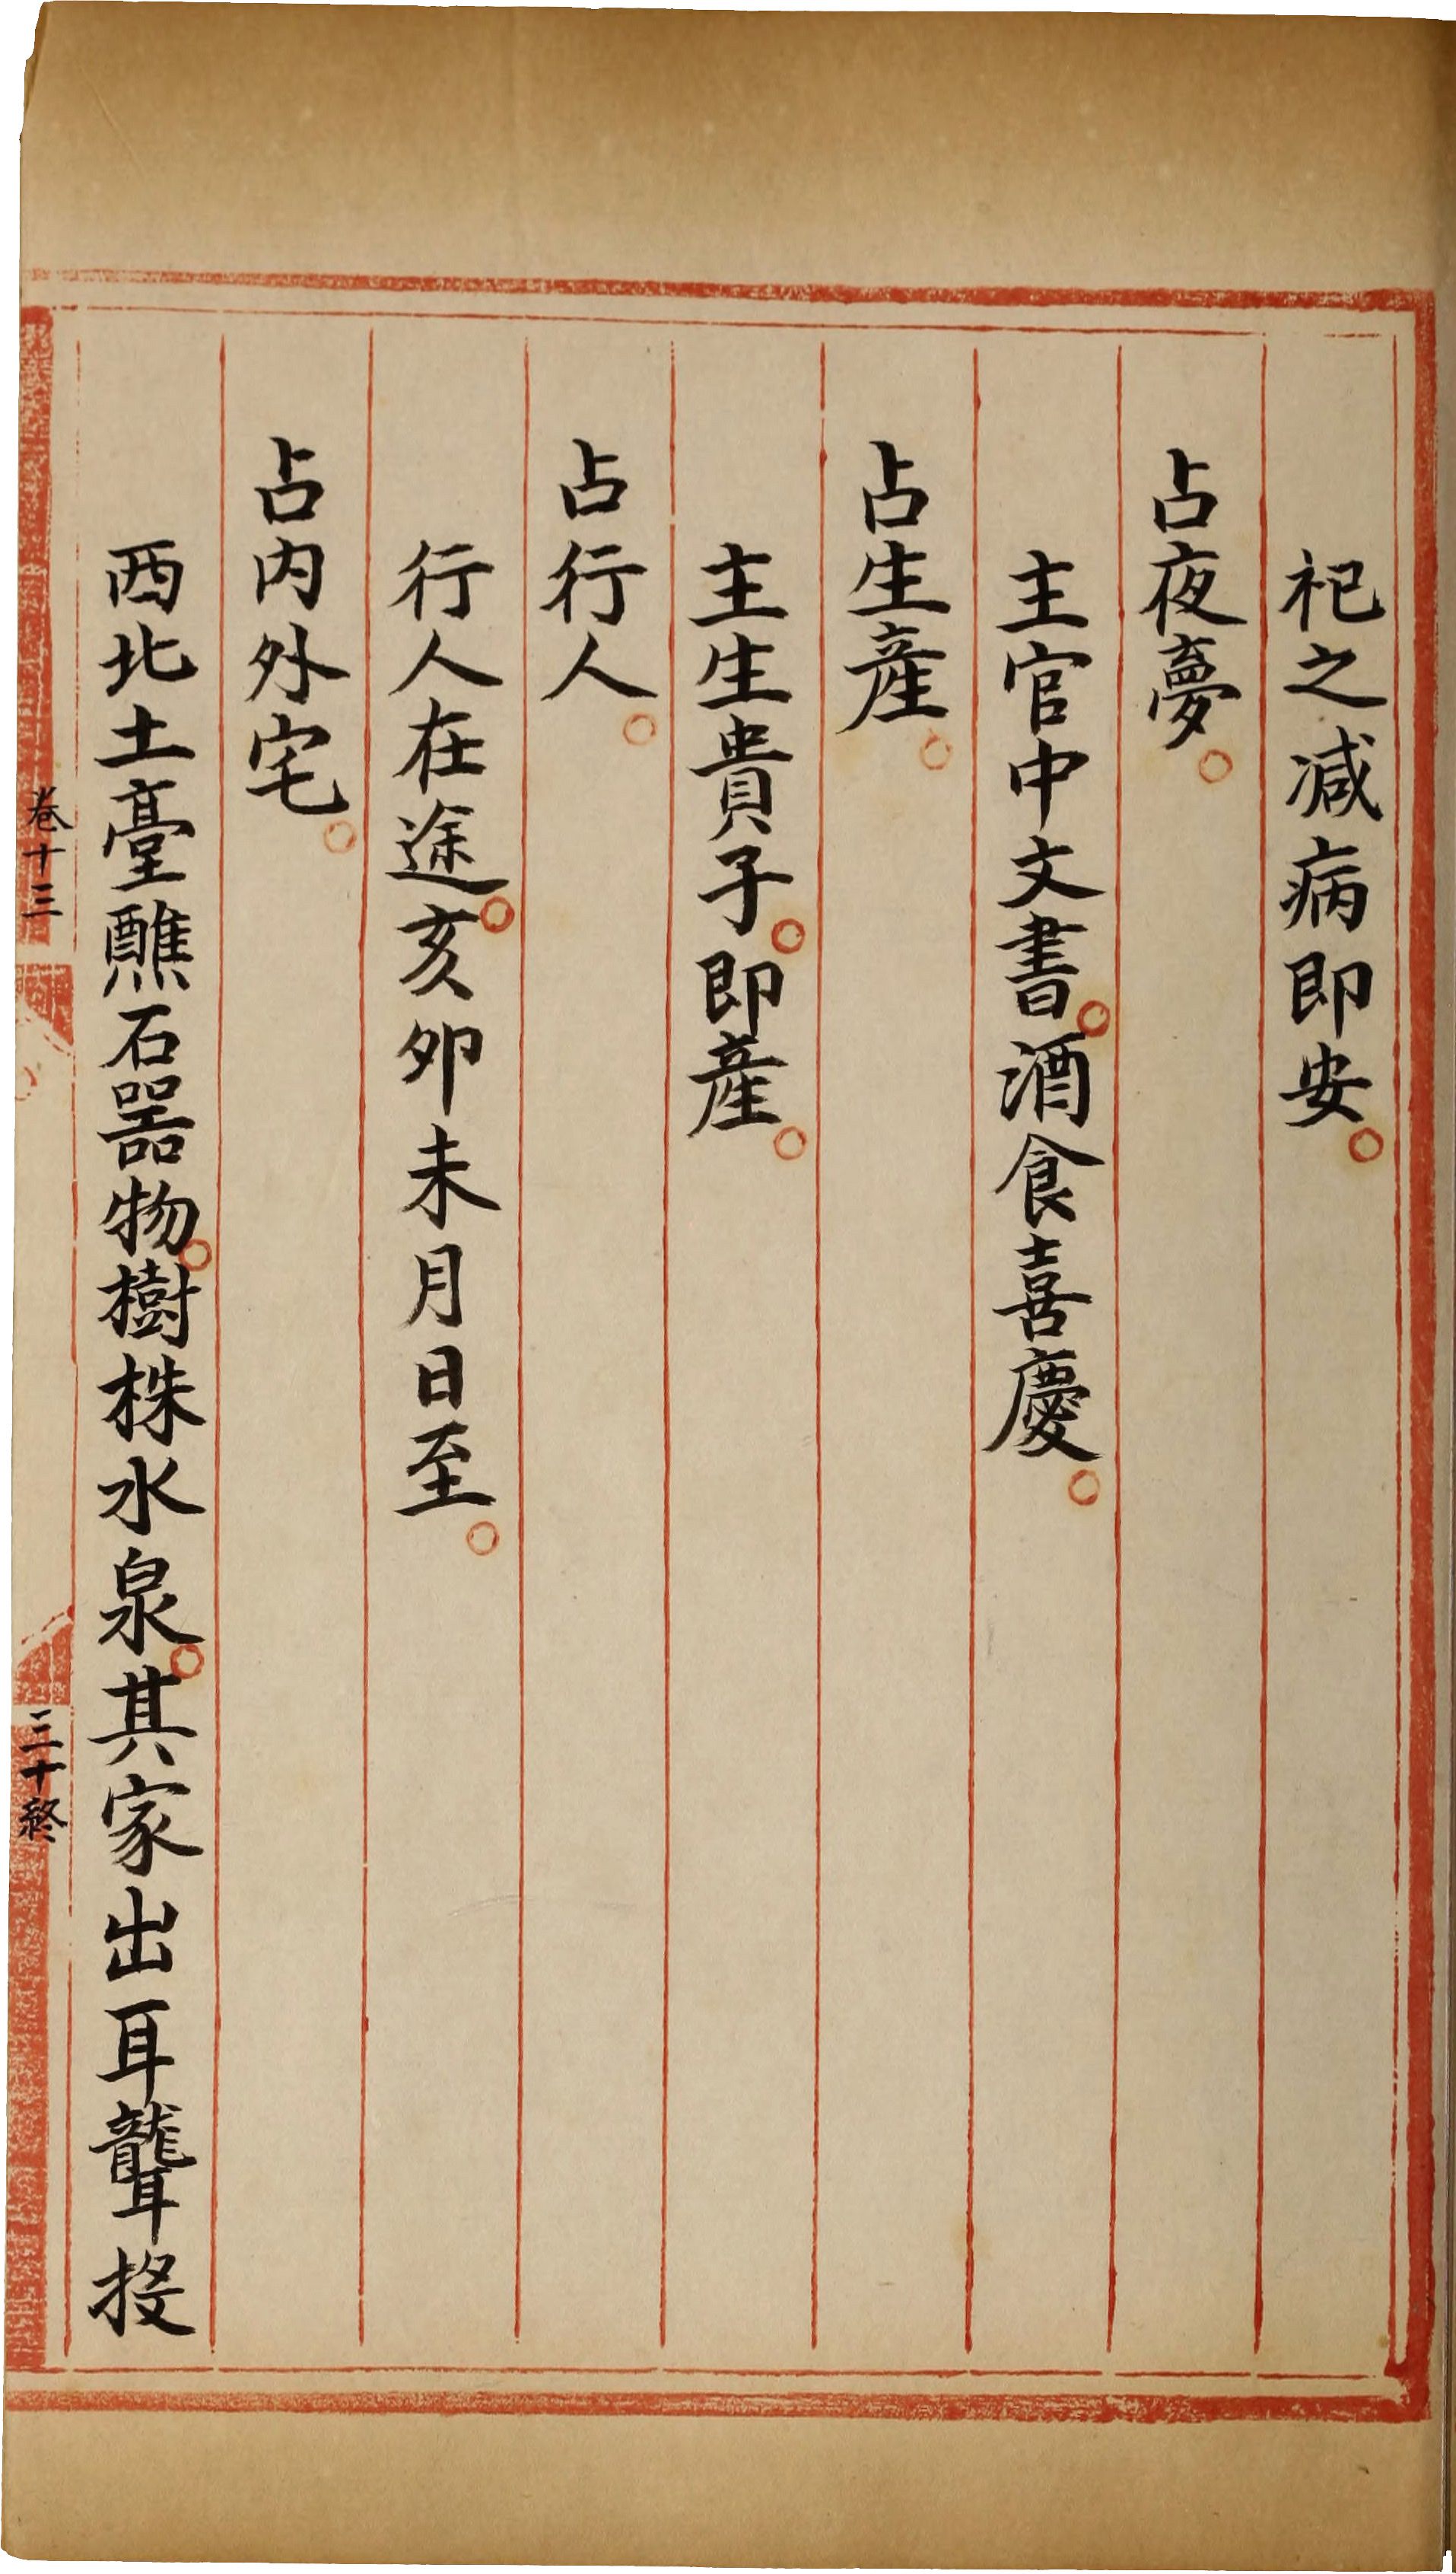 祀之减病即安。
占夜夢。
主官中文書。酒食喜慶。
占生產。
主生貴子。即產。
占行人。
行人在途。亥卯未月日至。
占內外宅。
西北土臺醮石器物。樹株水泉。其家出耳聾投
卷十三
三十終